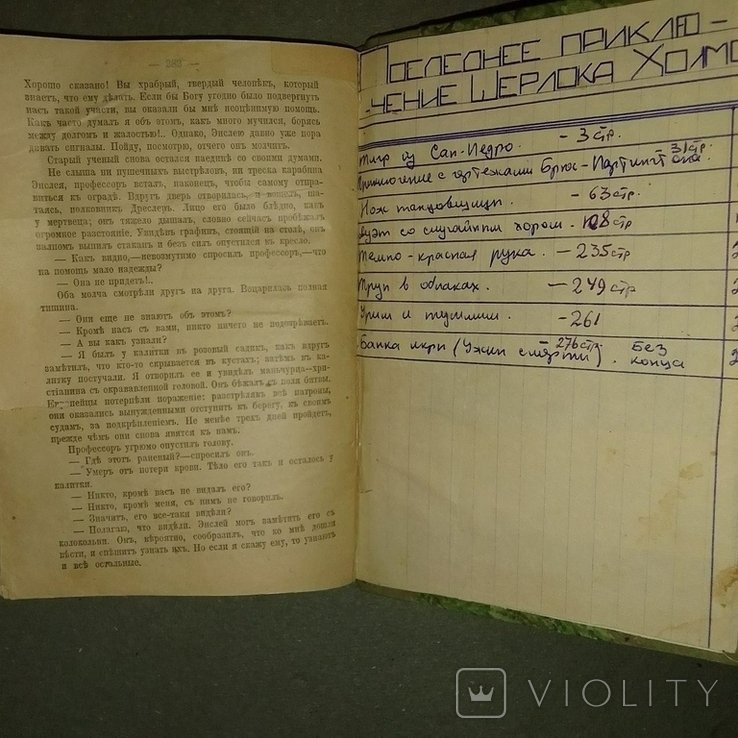 — 283 —
Хорошо сказано! Вы храбрый, твердый человѣкъ, который
знаетъ, что ему дѣлать. Если бы Богу угодно было подвергнуть
насъ такой участи, вы оказали бы мнѣ неоцѣнимую помощь.
Какъ часто думалъ я объ этомъ, какъ много мучился, борясь
между долгомъ и жалостью!.. Однако, Энслею давно уже пора
давать сигналы. Пойду, посмотрю, отчего онъ молчитъ.
Старый ученый снова остался наединѣ со своими думами.
Не слыша ни пушечныхъ выстрѣловъ, ни треска карабина
Энслея, профессоръ всталъ, наконецъ, чтобы самому отпра-
виться къ оградѣ. Вдругъ дверь отворилась, и вошелъ, ша-
таясь, полковникъ Дреслеръ. Лицо его было блѣдно, какъ
у мертвеца; онъ тяжело дышалъ, словно сейчасъ пробѣжалъ
огромное разстояніе. Увидѣвъ графинъ, стоящій на столѣ, онъ
залпомъ выпилъ стаканъ и безъ силъ опустился въ кресло.
— Какъ видно,—невозмутимо спросилъ профессоръ,—что
на помощь мало надежды?
— Она не придетъ!..
Оба молча смотрѣли другъ на друга. Воцарилась полная
тишина.
— Они еще не знаютъ объ этомъ?
— Кромѣ насъ съ вами, никто ничего не подозрѣваетъ.
— А вы какъ узнали?
— Я былъ у калитки въ розовый садикъ, какъ вдругъ
замѣтилъ, что кто-то скрывается въ кустахъ; затѣмъ въ ка-
литку постучали. Я отворилъ ее и увидѣлъ маньчжура—хри-
стіанина съ окравленной головой. Онъ бѣжалъ съ поля битвы.
пейцы потерпѣли пораженіе: разстрѣлявъ всѣ патроны,
они оказались вынужденными отступить къ берегу, къ своимъ
судамъ, за подкрѣпленіемъ. Не менѣе трехъ дней пройдетъ,
прежде чѣмъ они снова явятся къ вамъ.
Профессоръ угрюмо опустилъ голову.
— Гдѣ этотъ раненый?—спросилъ онъ.
— Умеръ отъ потери крови. Тѣло его такъ и осталось у
калитки.
— Никто, кромѣ васъ не видалъ его?
— Никто, кромѣ меня, съ нимъ не говорилъ.
— Значитъ, его все-таки видѣли?
— Полагаю, что видѣли. Энслей могъ замѣтить его съ
колокольни. Онъ, вѣроятно, сообразилъ, что ко мнѣ дошли
вѣсти, и спѣшитъ узнать ихъ. Но если я скажу ему, то узнаютъ
и всѣ остальные.
Последнее приклю-
-чение Шерлока Холмс
Тигр из Сан-Педро. – 3 стр.
Приключение с чертежами Брюс-Партингтона 31 стр
Нож танцовщицы – 63 стр.
Дуэт со случайным хором. – 108 стр
Темно-красная рука. – 235 стр
Труп в облаках. – 249 стр
Урим и туммим. – 261
Банка икры (Ужин смерти) – 276 стр. Без
конца
VIOLITY